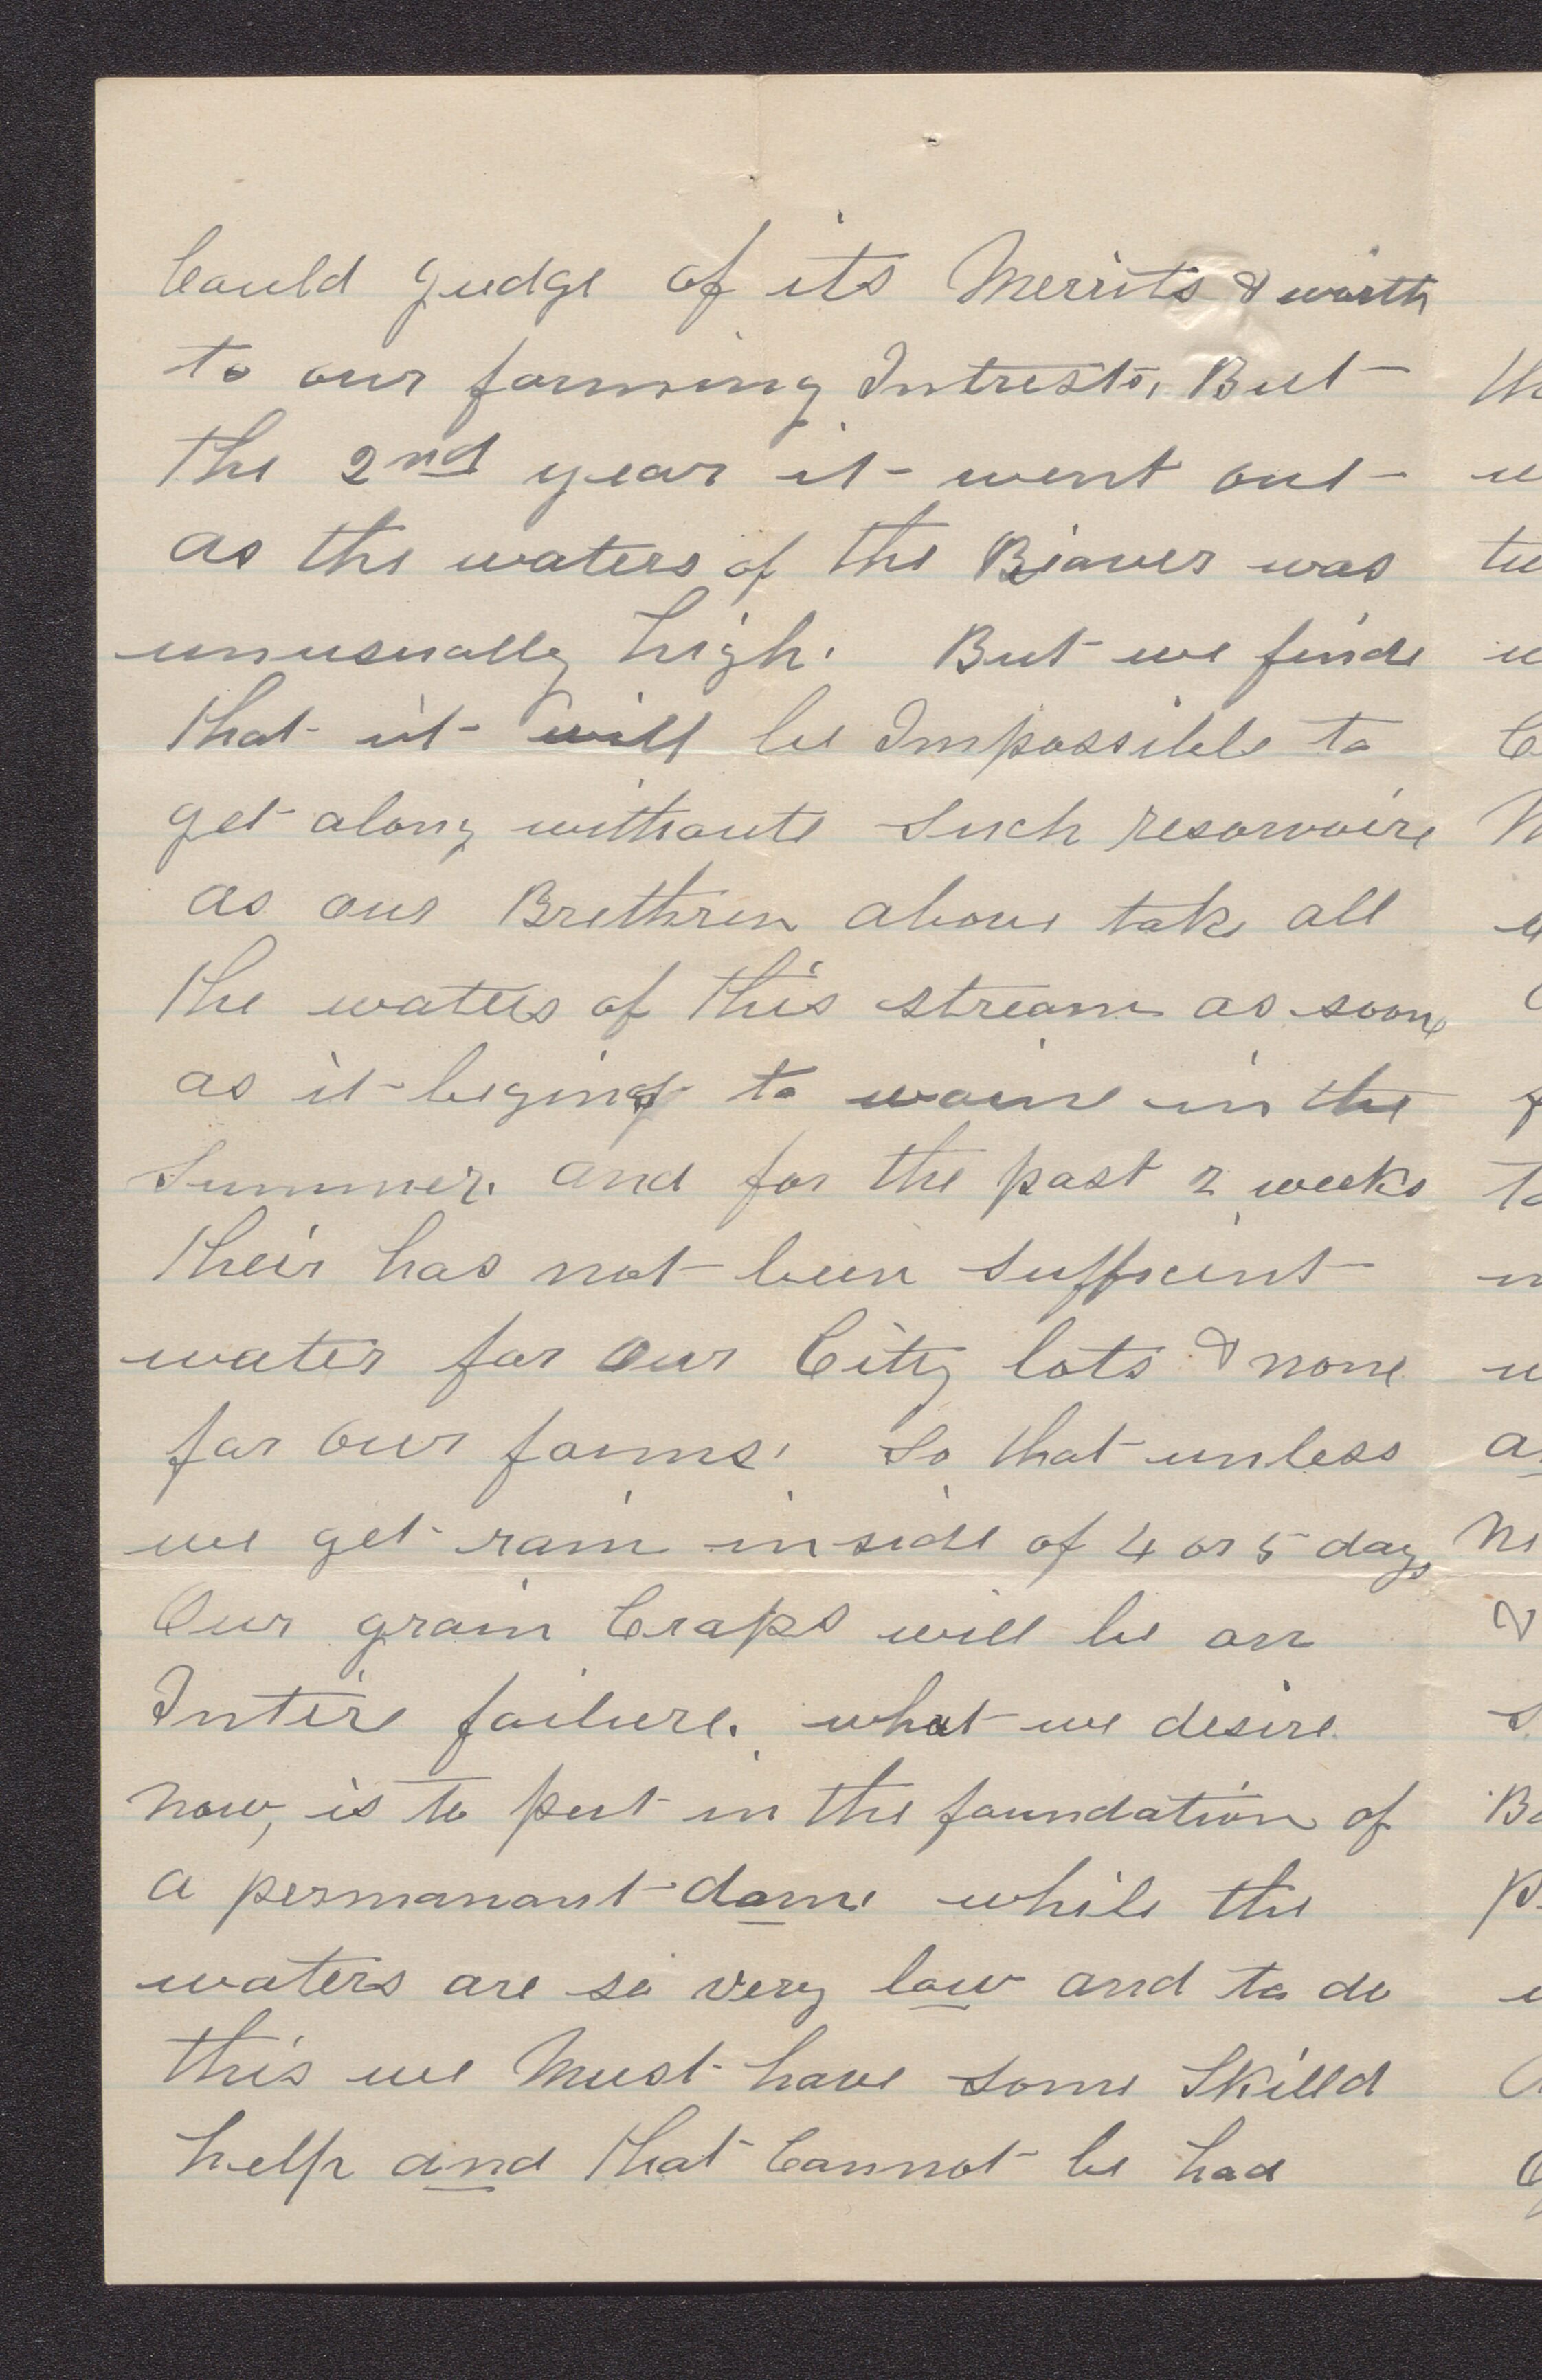 Could Judge of its Merrits & worth
to our farming Intrests, But
the 2nd year it went out
as the waters of the Beaver was
unusually high. But we finde
that it will be Impossible to
get along withoute such resorvoire
as our Brethren above take all
the waters of this stream as soon
as it begins to waine in the
summer. and for the past 2 weeks
their has not been sufficient
water for Our City lots & none
for our farms. So that unless
we get rain inside of 4 or 5 days
Our grain Craps will be an
Intire failure. what we desire
now, is to put in the foundation of
a permanant dame while the
waters are so very low and to do
this we Must have some Skilld
help and that Cannot be had